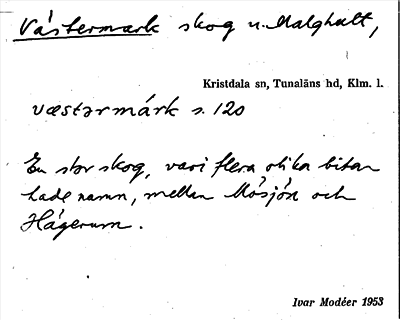 Västermark skog u. Malghult,
Kristdala sn, Tunaläns hd, Klm. l.
væstərmárk s. 120
En stor skog, vari flera olika bitar
hade namn, mellan Mosjön och
Hägerum.
Ivar Modéer 1953